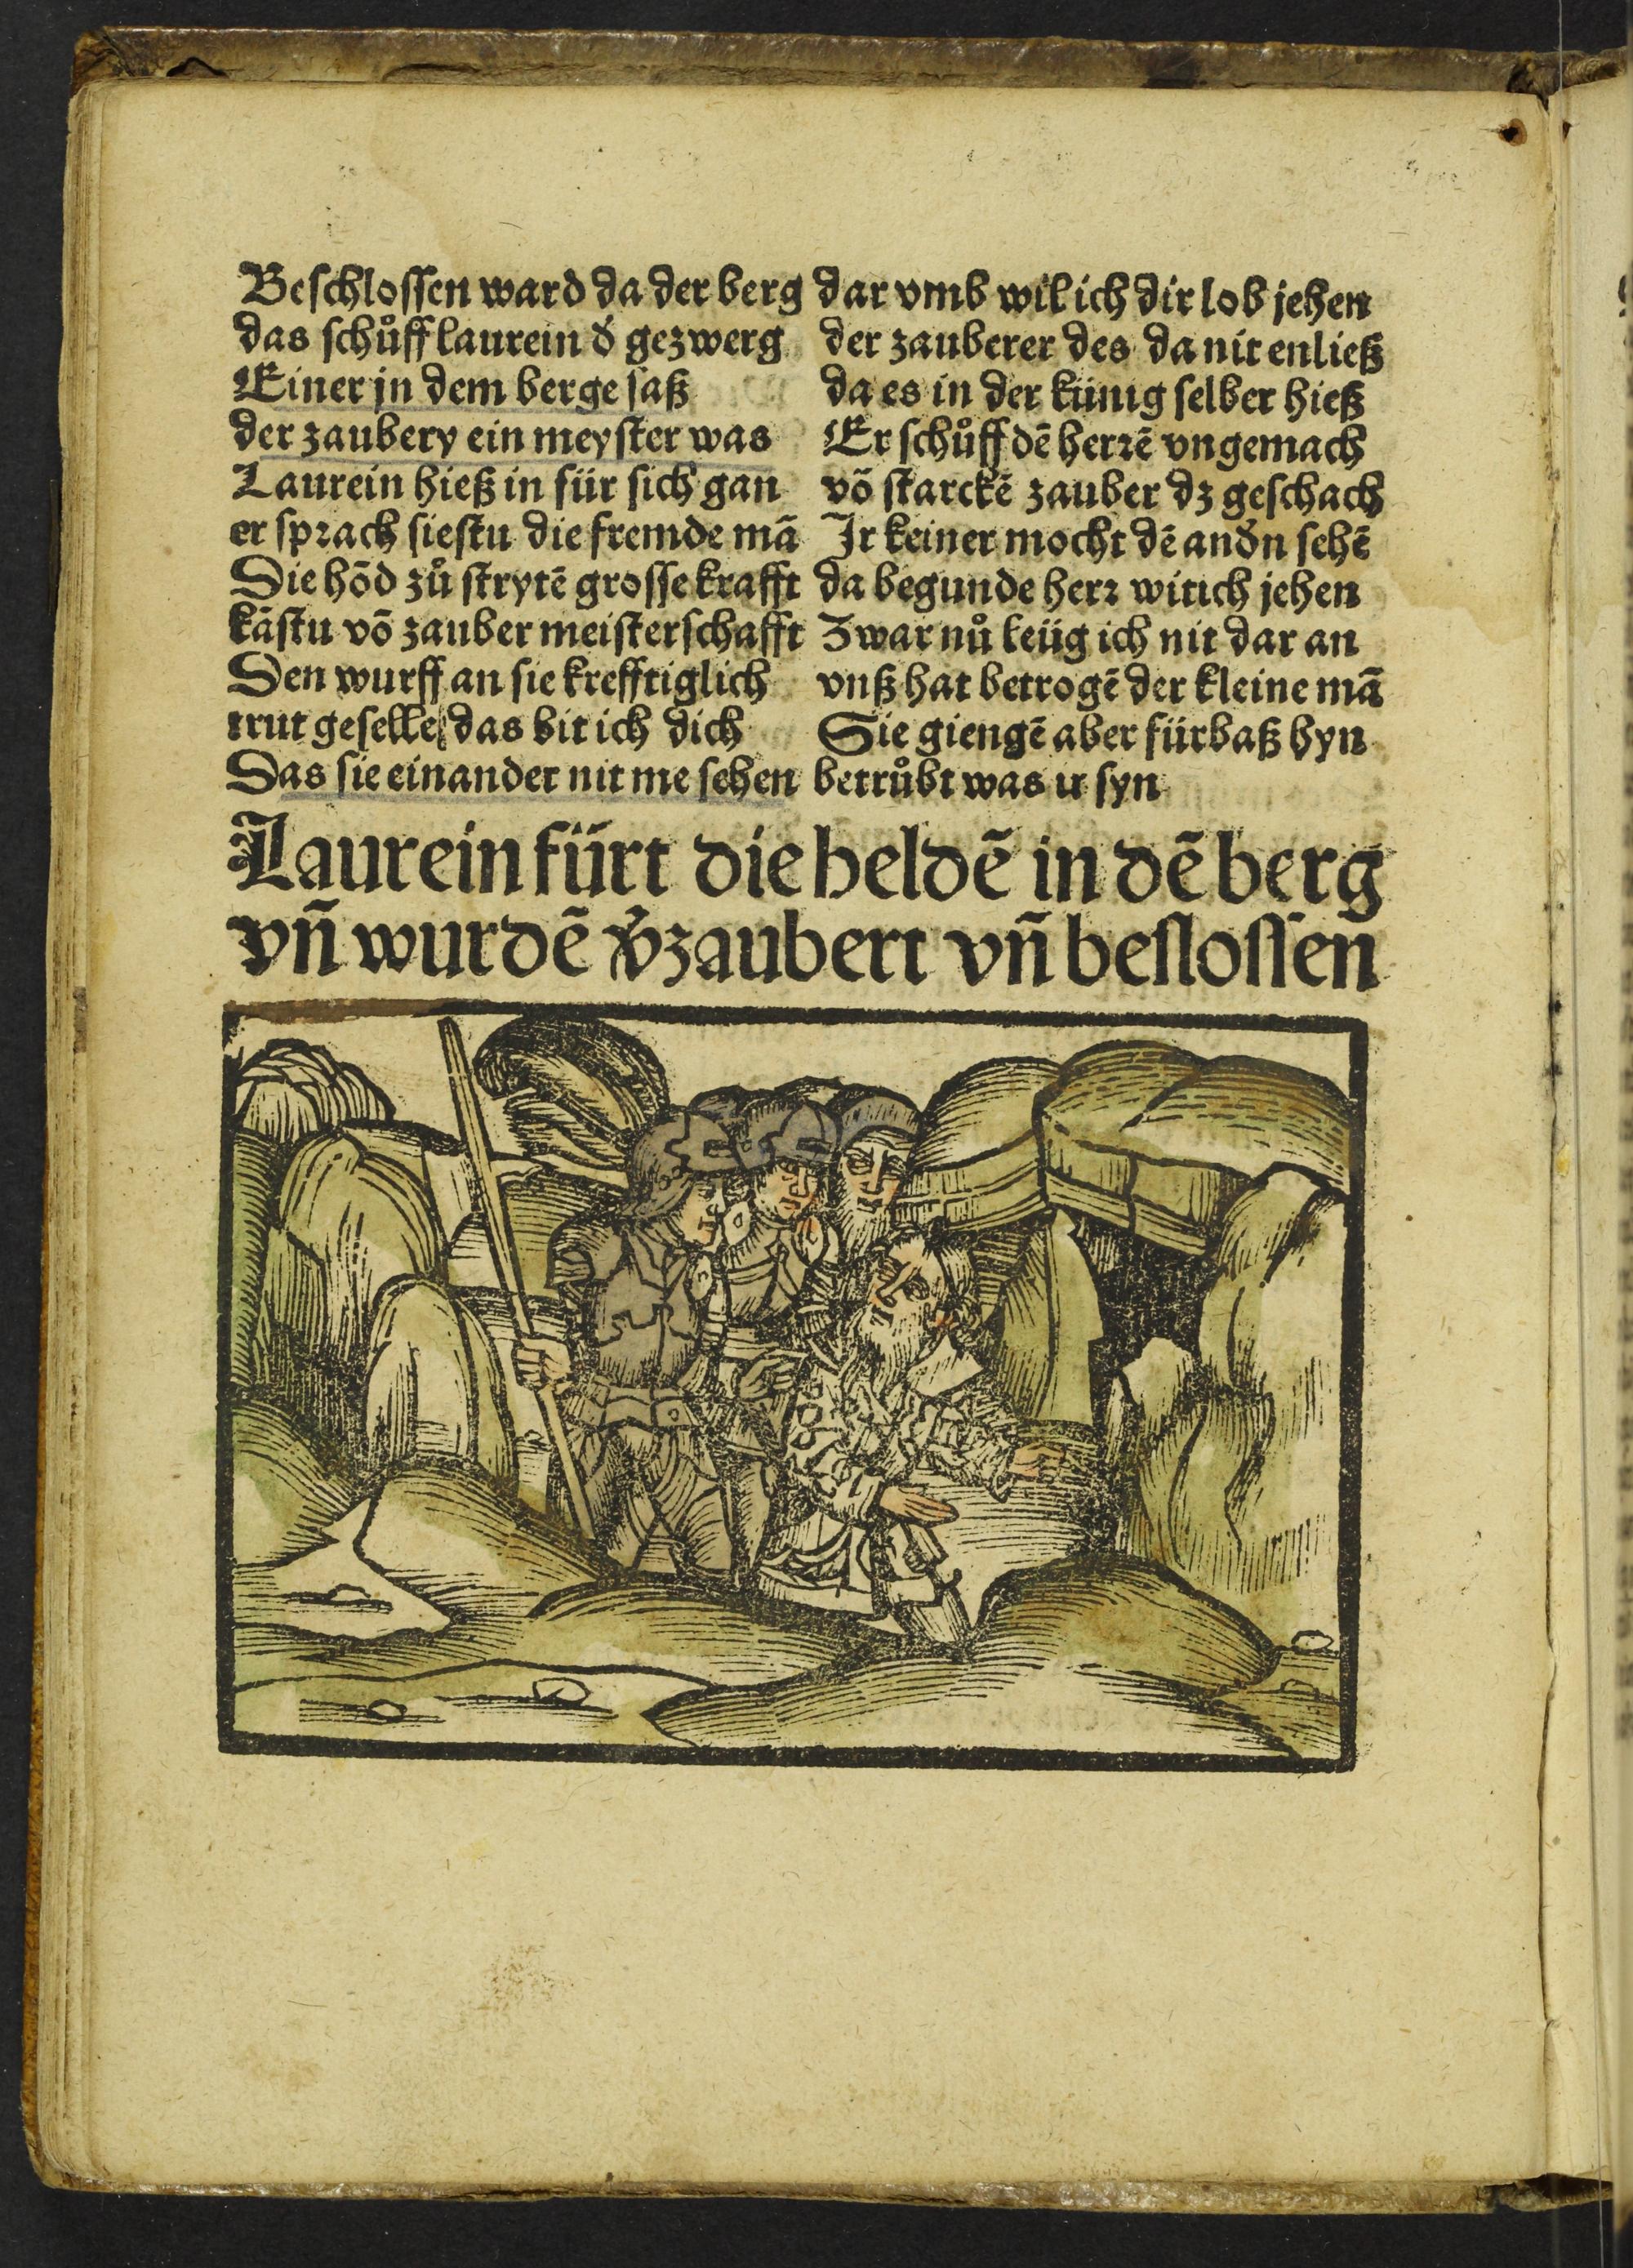 Beschlossen ward da der berg
das schůff laurein d̾ gezwerg
Einer jn dem berge saß
der zaubery ein meyster was
Laurein hieß in für sich gan
er sprach siestu die fremde mā
Die hōd zů strytē grosse krafft
kāstu vō zauber meisterschafft
Den wurff an sie krefftiglich
trut geselle das bit ich dich
Das sie einander nit me sehen
dar vmb wil ich dir lob jehen
der zauberer des da nit enließ
da es in der künig selber hieß
Er schůff dē herrē vngemach
vō starckē zauber dz geschach
Ir keiner mocht dē and̾n sehē
da begunde herr witich jehen
Zwar nů leüg ich nit dar an
vnß hat betrogē der kleine mā
Sie giengē aber fürbaß hyn
betrůbt was ir syn
Laurein fürt die heldē in dē berg
vn̄ wurdē v̾zaubert vn̄ beslossen